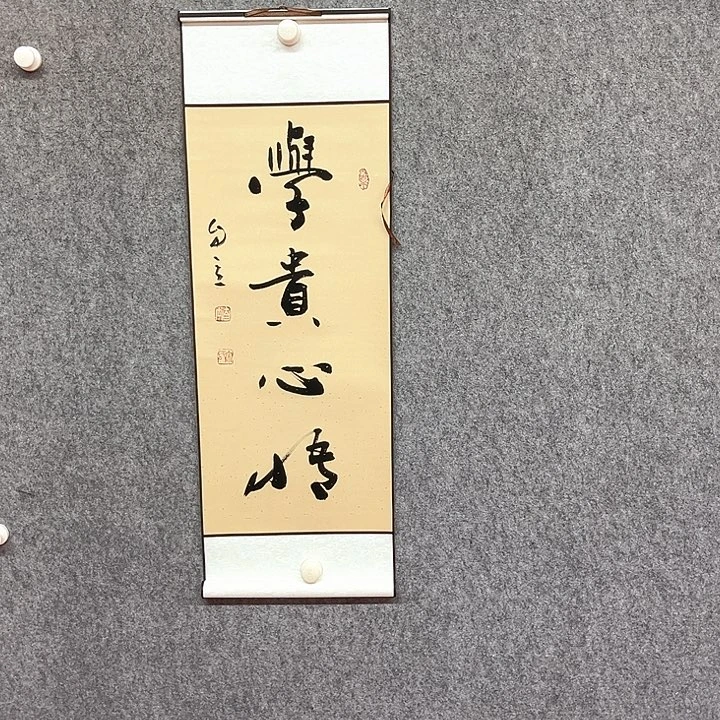 學貴心悟